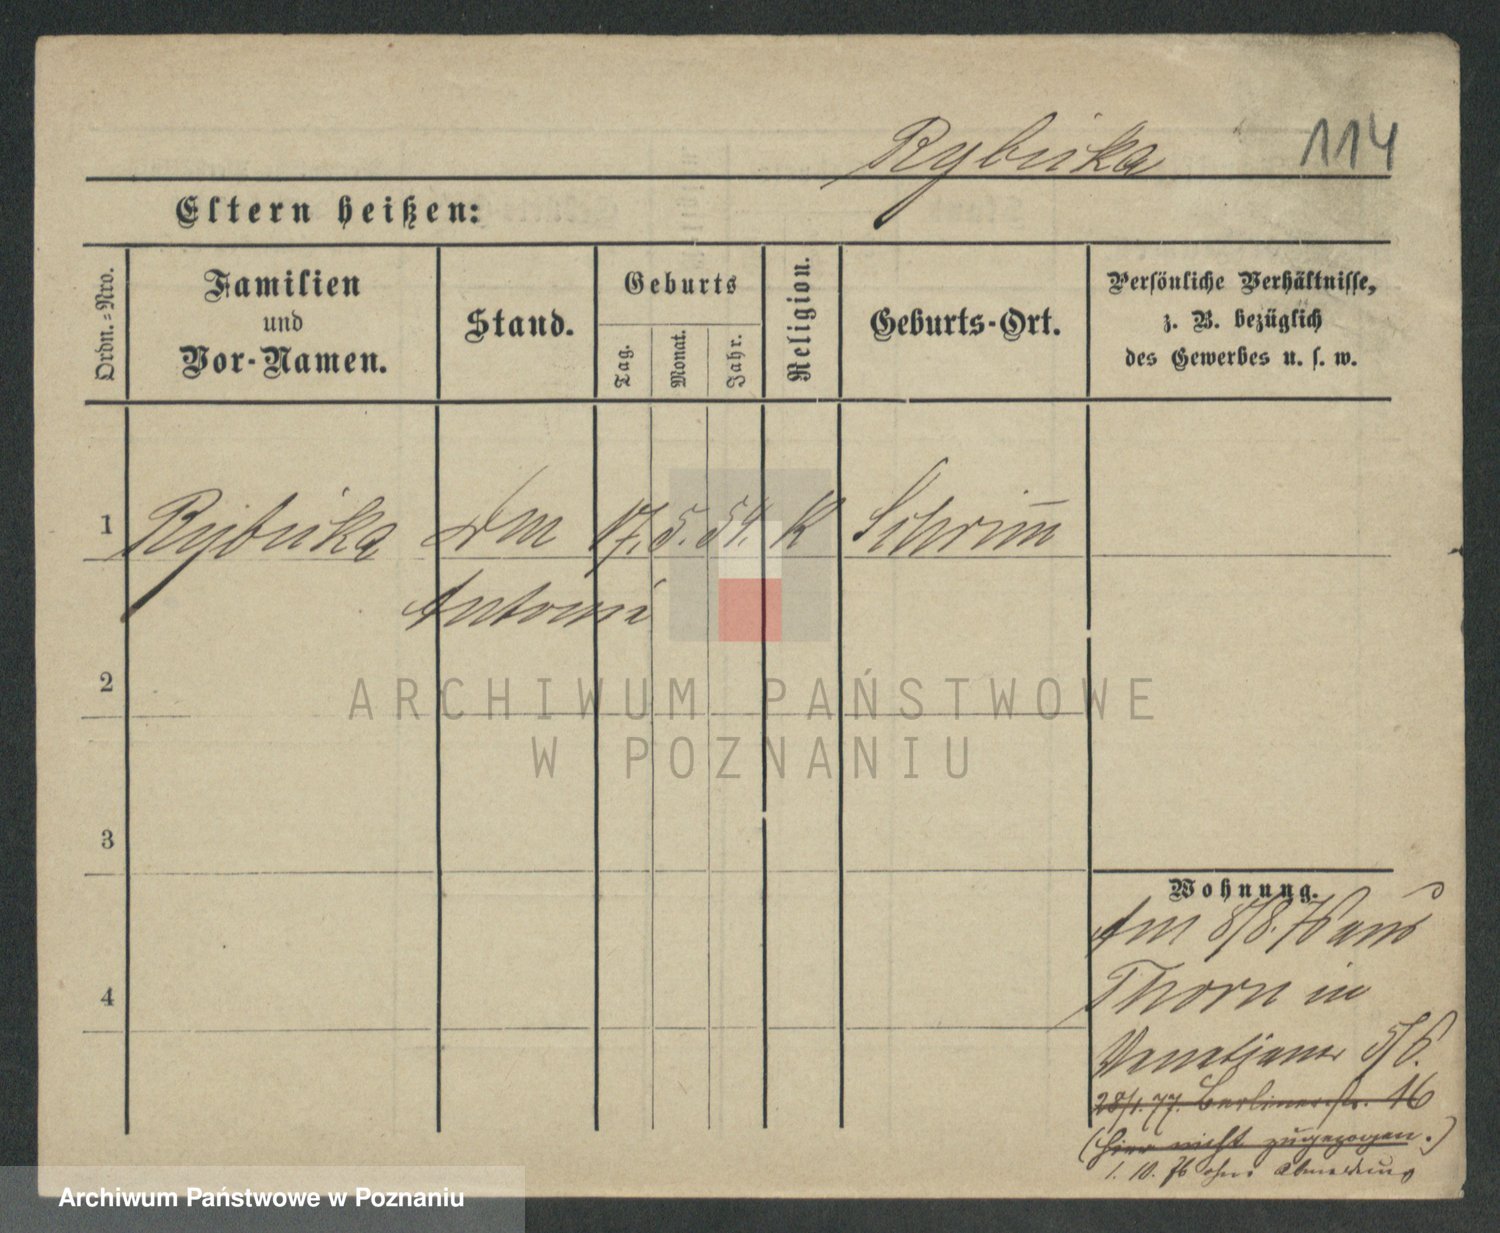 Rybicka
114
Eltern heißen:
Ordn.-Nro.
Familien
und
Vor-Namen.
Stand.
Geburts
Tag.
Monat.
Jahr.
Religion.
Geburts-Ort.
Persönliche Verhältnisse,
z. B. bezüglich
des Gewerbes u. s. w.
1 Rybicka 17. 5. 54. K Schrim
Antonie
2
3
4
Wohnung.
Am 8/8. 76 aus
Thorn in
Venetianer 5/6.
28/1. 77. Berlinerstr. 16
(hier nicht zugezogen.)
1. 10. 76 ohne Abmeldung
ARCHIWUM PAŃSTWOWE
W POZNANIU
Archiwum Państwowe w Poznaniu